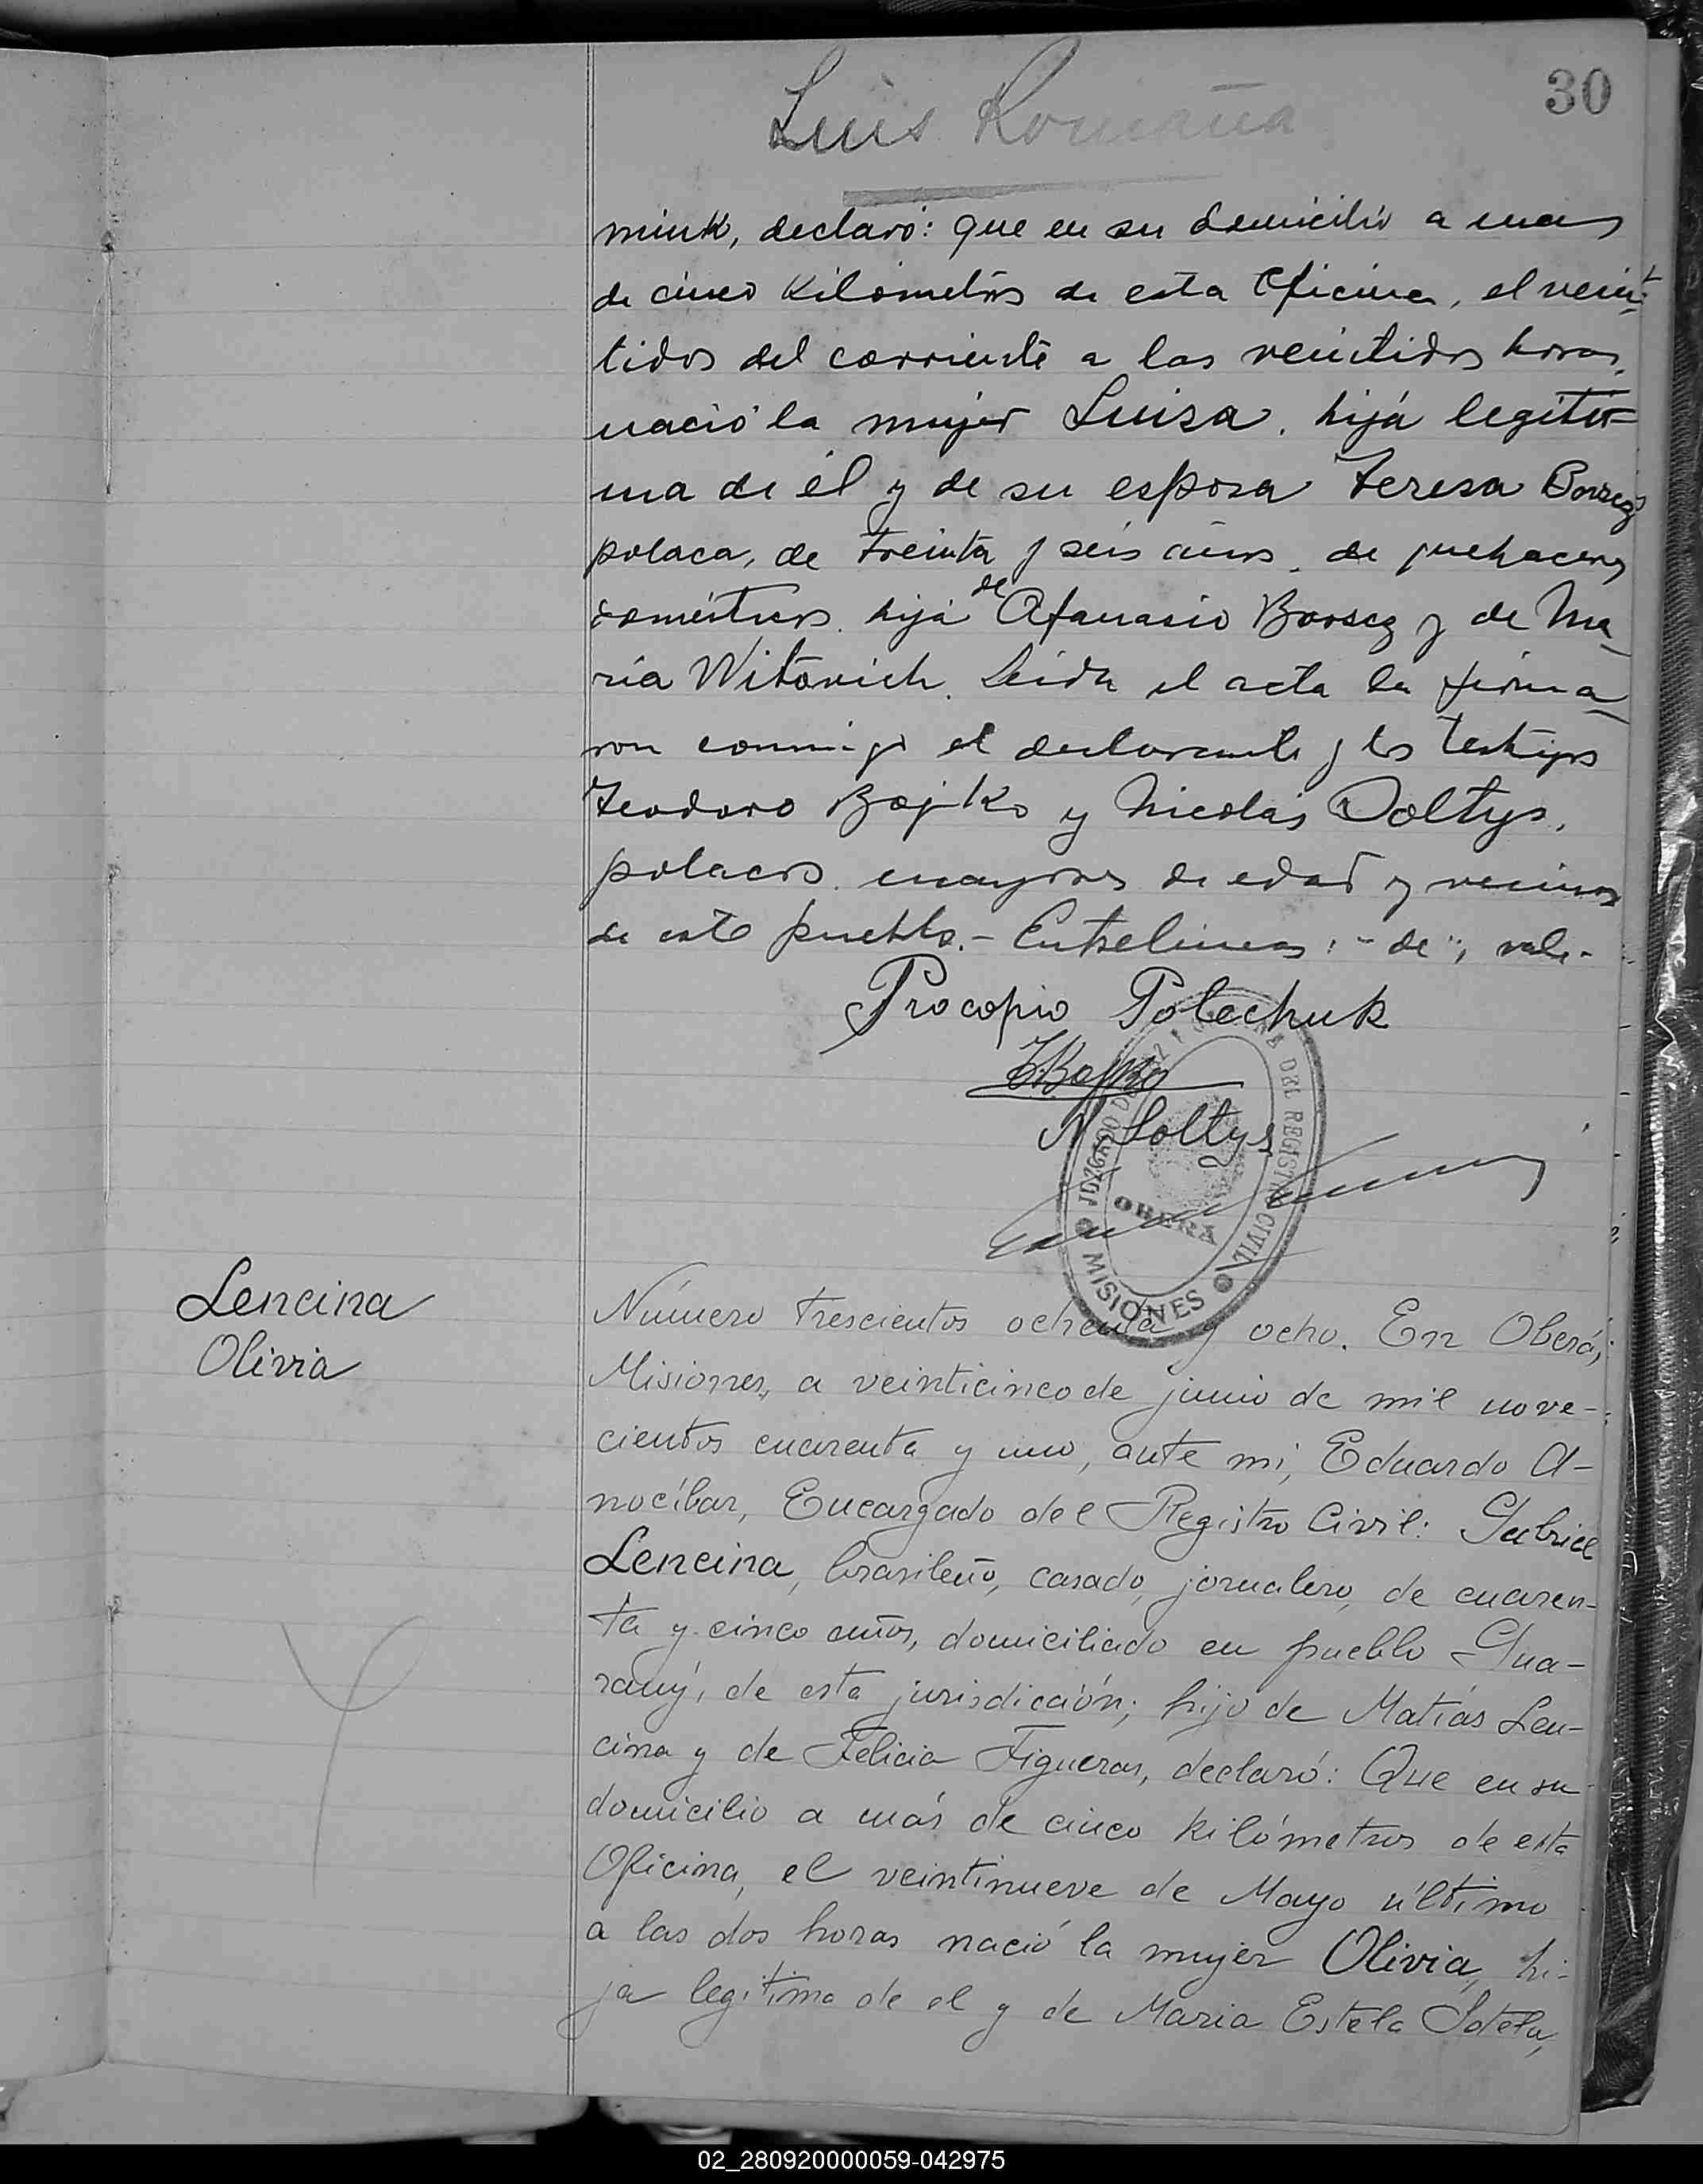 30
Luis Romaña
miuk, declaró: que en su domicilio a mas
de cinco kilómetros de esta Oficina, el vein-
tidos del corriente a las veintidos horas,
nació la mujer Luisa, hija legíti=
ma de él y de su esposa Teresa
polaca, de treinta y seis años, de quehaceres
domésticos, hija de Afanasio Borsez y de Ma-
ría Witovich. Leída el acta la firma-
ron conmigo el declarante y los testigos
Teodoro Bojko y Nicolás Soltys,
polacos, mayores de edad y vecinos
de este pueblo.- Entrelineas: "de", vale-
Procopio Polechuk
T. Bojko
N Soltys
JUZGADO DE PAZ DEL REGISTRO CIVIL
OBERÁ
MISIONES
Lencina
Olivia
Número trescientos ochenta y ocho. En Oberá,
Misiones, a veinticinco de junio de mil nove-
cientos cuarenta y uno, ante mi, Eduardo A-
nocíbar, Encargado del Registro Civil: Gabriel
Lencina, brasileño, casado, jornalero, de cuaren-
ta y cinco años, domiciliado en pueblo Gua-
raný, de esta jurisdicción; hijo de Matías Len-
cina y de Felicia Figueras, declaró: Que en su
domicilio a más de cinco kilómetros de esta
Oficina, el veintinueve de Mayo último
a las dos horas nació la mujer Olivia, hi-
ja legitima de el y de Maria Estela Sotelo,
02_280920000059-042975